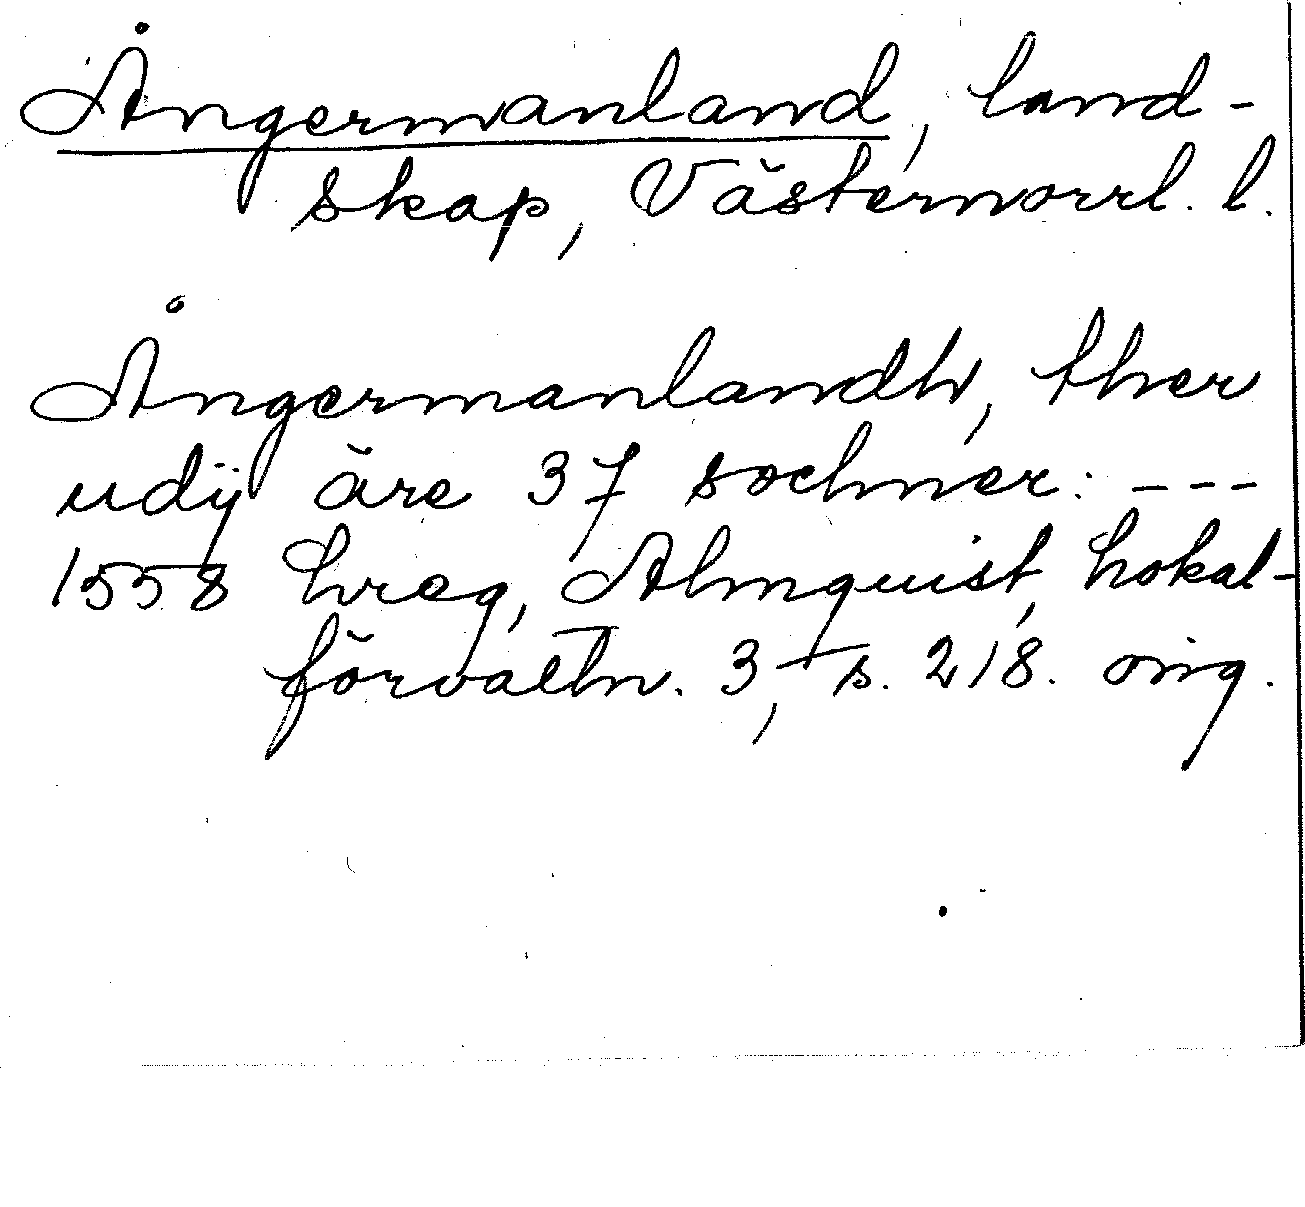 Ångermanland, land-
skap, Västernorrl. l.
Ångermanlandh, ther
udÿ äre 37 sochner: ---
1558 hreg, Almquist, Lokal-
förvaltn. 3, s. 218. orig.